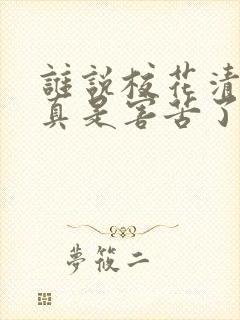 誰說校花清
真是害苦了
夢筱二